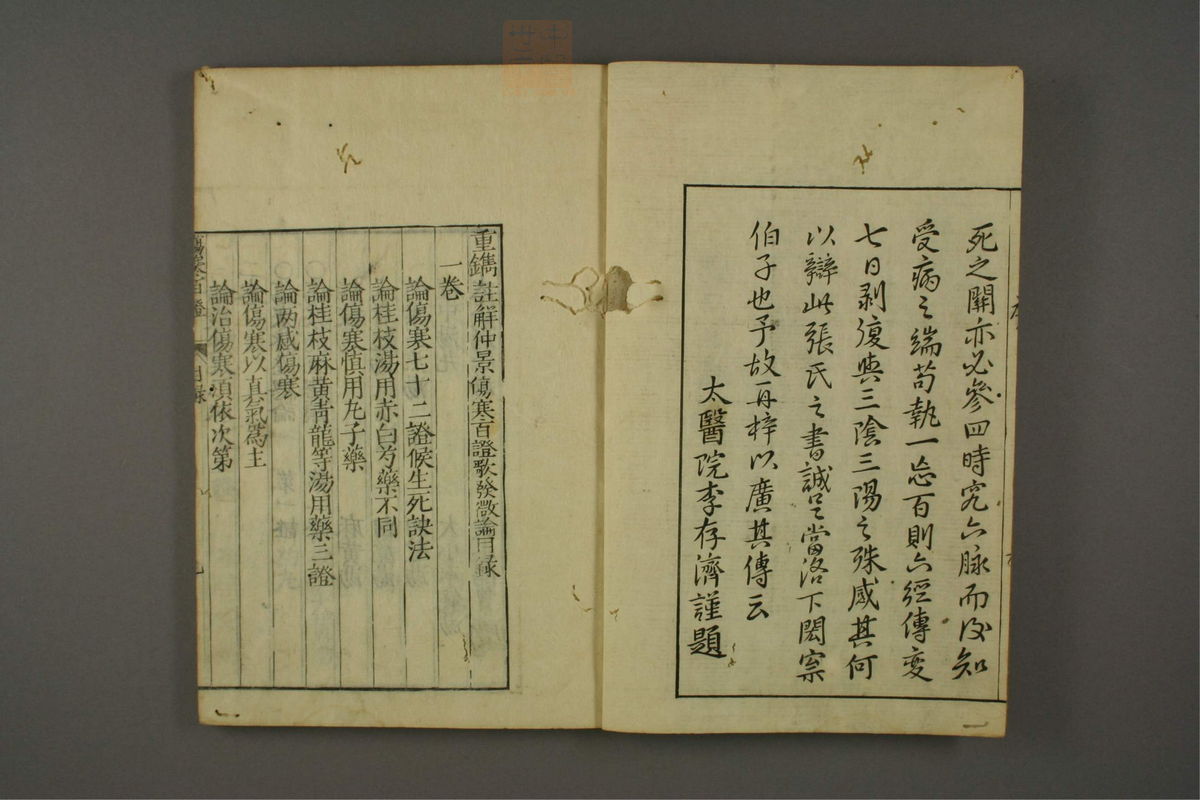 死之關亦必參四時究六脉而後知
受病之端苟執一忘百則六經傳變
七日剥復與三陰三陽之殊感其何
以辯此張氏之書誠足當洛下閎案
伯子也予故再梓以廣其傳云
太醫院李存濟謹題
重鐫註解仲景傷寒百證歌發微論目錄
一卷
論傷寒七十二證候生死訣法
論桂枝湯用赤白芍藥不同
論傷寒慎用丸子藥
論桂枝麻黄青龍等湯用藥三證
論兩感傷寒
論傷寒以真氣爲主
論治傷寒須依次第
傷寒百證 目錄